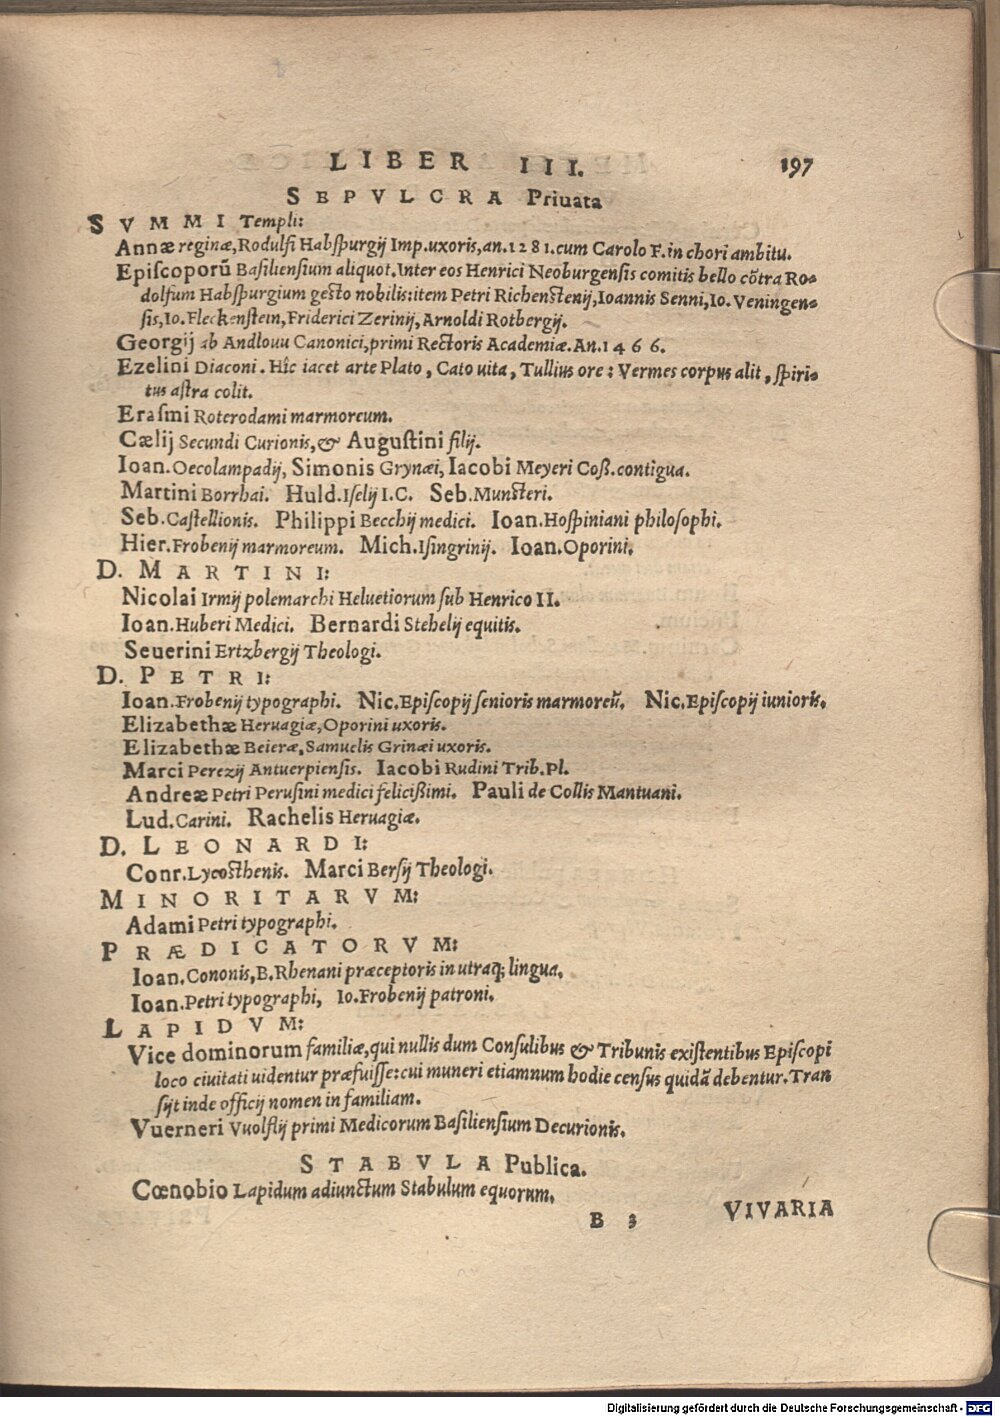 LIBER III. 197
SEPVLCRA Priuata
SVMMI Templi:
Annæ reginæ, Rodulfi Habſpurgij Imp. uxoris, an. 1281. cum Carolo F. in chori ambitu.
Epiſcoporū Baſilienſium aliquot. Inter eos Henrici Neoburgenſis comitis bello cōtra Ro-
dolfum Habſpurgium geſto nobilis: item Petri Richenſtenij, Ioannis Senni, Io. Veningen-
ſis, Io. Fleckenſtein, Friderici Zerinij, Arnoldi Rotbergij.
Georgij ab Andlouu Canonici, primi Rectoris Academiæ. An. 1466.
Ezelini Diaconi. Hîc iacet arte Plato, Cato uita, Tullius ore: Vermes corpus alit, ſpiri-
tus aſtra colit.
Eraſmi Roterodami marmoreum.
Cælij Secundi Curionis, & Auguſtini filij.
Ioan. Oecolampadij, Simonis Grynæi, Iacobi Meyeri Coß. contigua.
Martini Borrhai. Huld. Iſelij I.C. Seb. Munſteri.
Seb. Caſtellionis. Philippi Becchij medici. Ioan. Hoſpiniani philoſophi.
Hier. Frobenij marmoreum. Mich. Iſingrinij. Ioan. Oporini.
D. MARTINI:
Nicolai Irmij polemarchi Heluetiorum ſub Henrico II.
Ioan. Huberi Medici. Bernardi Stehelij equitis.
Seuerini Ertzbergij Theologi.
D. PETRI:
Ioan. Frobenij typographi. Nic. Epiſcopij ſenioris marmoreū. Nic. Epiſcopij iunioris.
Elizabethæ Heruagiæ, Oporini uxoris.
Elizabethæ Beieræ, Samuelis Grinæi uxoris.
Marci Perezij Antuerpienſis. Iacobi Rudini Trib. Pl.
Andreæ Petri Peruſini medici felicißimi. Pauli de Collis Mantuani.
Lud. Carini. Rachelis Heruagiæ.
D. LEONARDI:
Conr. Lycoſthenis. Marci Berſij Theologi.
MINORITARVM:
Adami Petri typographi.
PRÆDICATORVM:
Ioan. Cononis, B. Rhenani præceptoris in utraq; lingua.
Ioan. Petri typographi, Io. Frobenij patroni.
LAPIDVM:
Vice dominorum familiæ, qui nullis dum Conſulibus & Tribunis exiſtentibus Epiſcopi
loco ciuitati uidentur præfuiſſe: cui muneri etiamnum hodie cenſus quidā debentur. Tran
ſijt inde officij nomen in familiam.
Vuerneri Vuolflij primi Medicorum Baſilienſium Decurionis.
STABVLA Publica.
Cœnobio Lapidum adiunctum Stabulum equorum.
B 3 VIVARIA
Digitalisierung gefördert durch die Deutsche Forschungsgemeinschaft - DFG